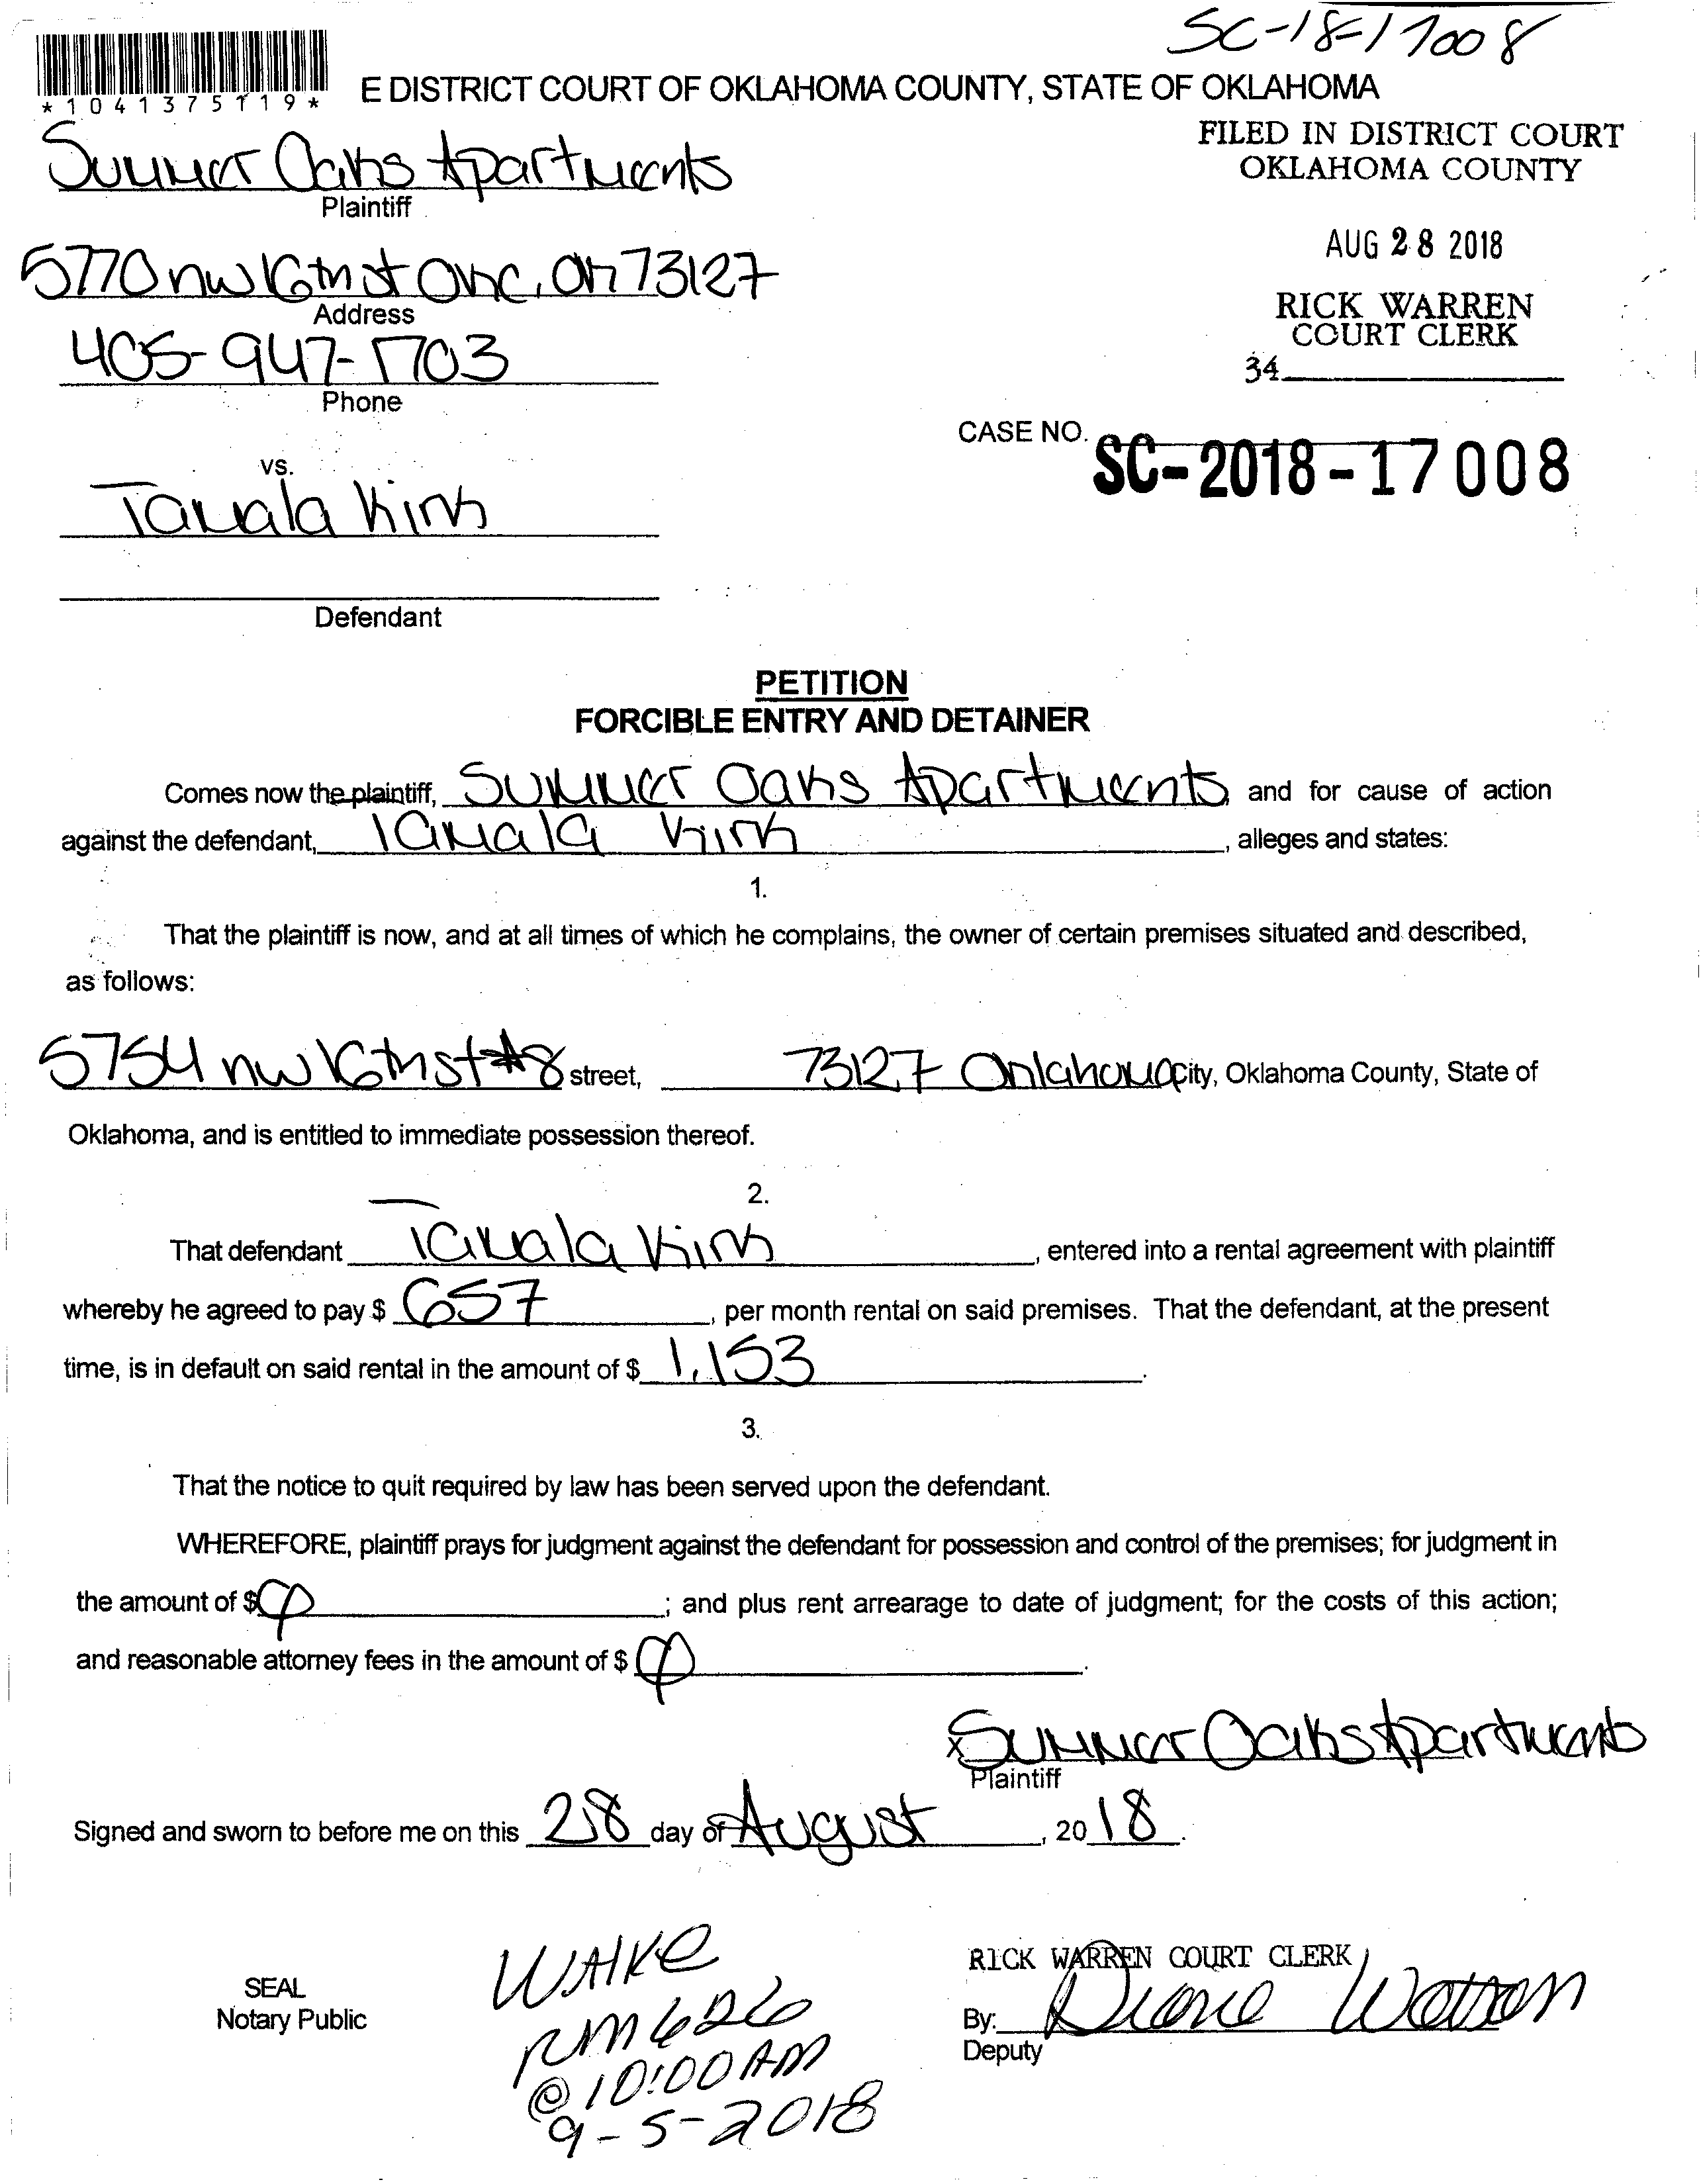 SC-18-17008
*1041375119*
E DISTRICT COURT OF OKLAHOMA COUNTY, STATE OF OKLAHOMA
FILED IN DISTRICT COURT
OKLAHOMA COUNTY
Summer Oaks Apartments
Plaintiff
AUG 28 2018
5770 nw 16th st OKC, OK 73127
Address
RICK WARREN
COURT CLERK
405-947-1703
34
Phone
CASE NO. SC-2018-17008
vs.
Tamala Kirk
Defendant
PETITION
FORCIBLE ENTRY AND DETAINER
Comes now the plaintiff, Summer Oaks Apartments, and for cause of action
against the defendant, Tamala Kirk, alleges and states:
1.
That the plaintiff is now, and at all times of which he complains, the owner of certain premises situated and described,
as follows:
5754 nw 16th st #8 street, 73127 Oklahoma City, Oklahoma County, State of
Oklahoma, and is entitled to immediate possession thereof.
2.
That defendant Tamala Kirk, entered into a rental agreement with plaintiff
whereby he agreed to pay $ 657, per month rental on said premises. That the defendant, at the present
time, is in default on said rental in the amount of $ 1,153.
3.
That the notice to quit required by law has been served upon the defendant.
WHEREFORE, plaintiff prays for judgment against the defendant for possession and control of the premises; for judgment in
the amount of $ φ; and plus rent arrearage to date of judgment; for the costs of this action;
and reasonable attorney fees in the amount of $ φ.
x Summer Oaks Apartments
Plaintiff
Signed and sworn to before me on this 28 day of August, 2018.
WAlKe
RM 626
@ 10:00 AM
9-5-2018
SEAL
Notary Public
RICK WARREN COURT CLERK
By: Diane Watson
Deputy